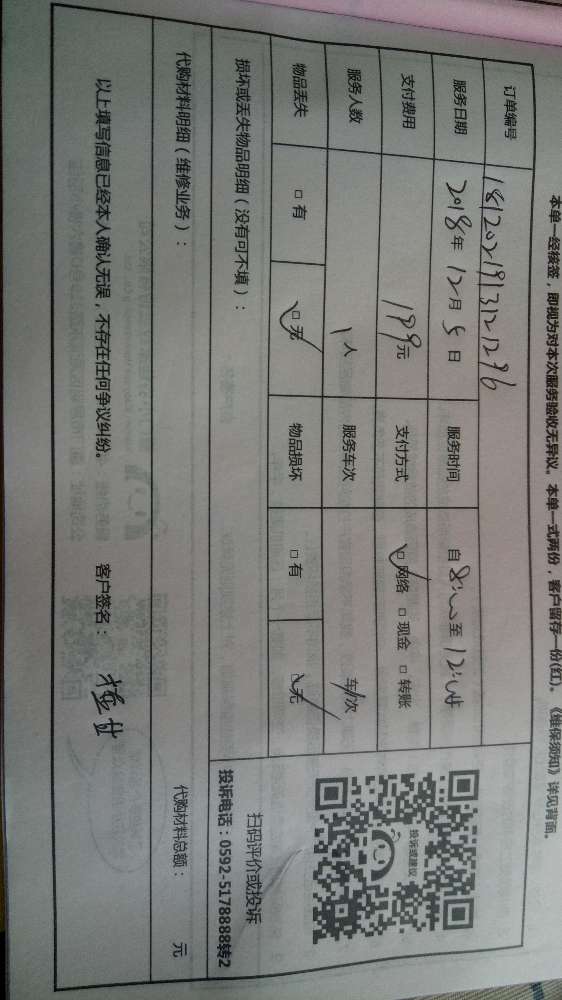 本单一经核签，即视为对本次服务验收无异议。本单一式两份，客户留存一份(红)。《维保须知》详见背面。
订单编号 1812021913121296
服务日期 2018年12月5日 服务时间 自8:00至12:00
支付费用 199元 支付方式 □网络 □现金 □转账
服务人数 1人 服务车次 车/次
物品丢失 □有 □无 物品损坏 □有 □无
投诉或建议
扫码评价或投诉
投诉电话：0592-5178888转2
损坏或丢失物品明细（没有可不填）：
代购材料明细（维修业务）： 代购材料总额： 元
以上填写信息已经本人确认无误，不存在任何争议纠纷。 客户签名：